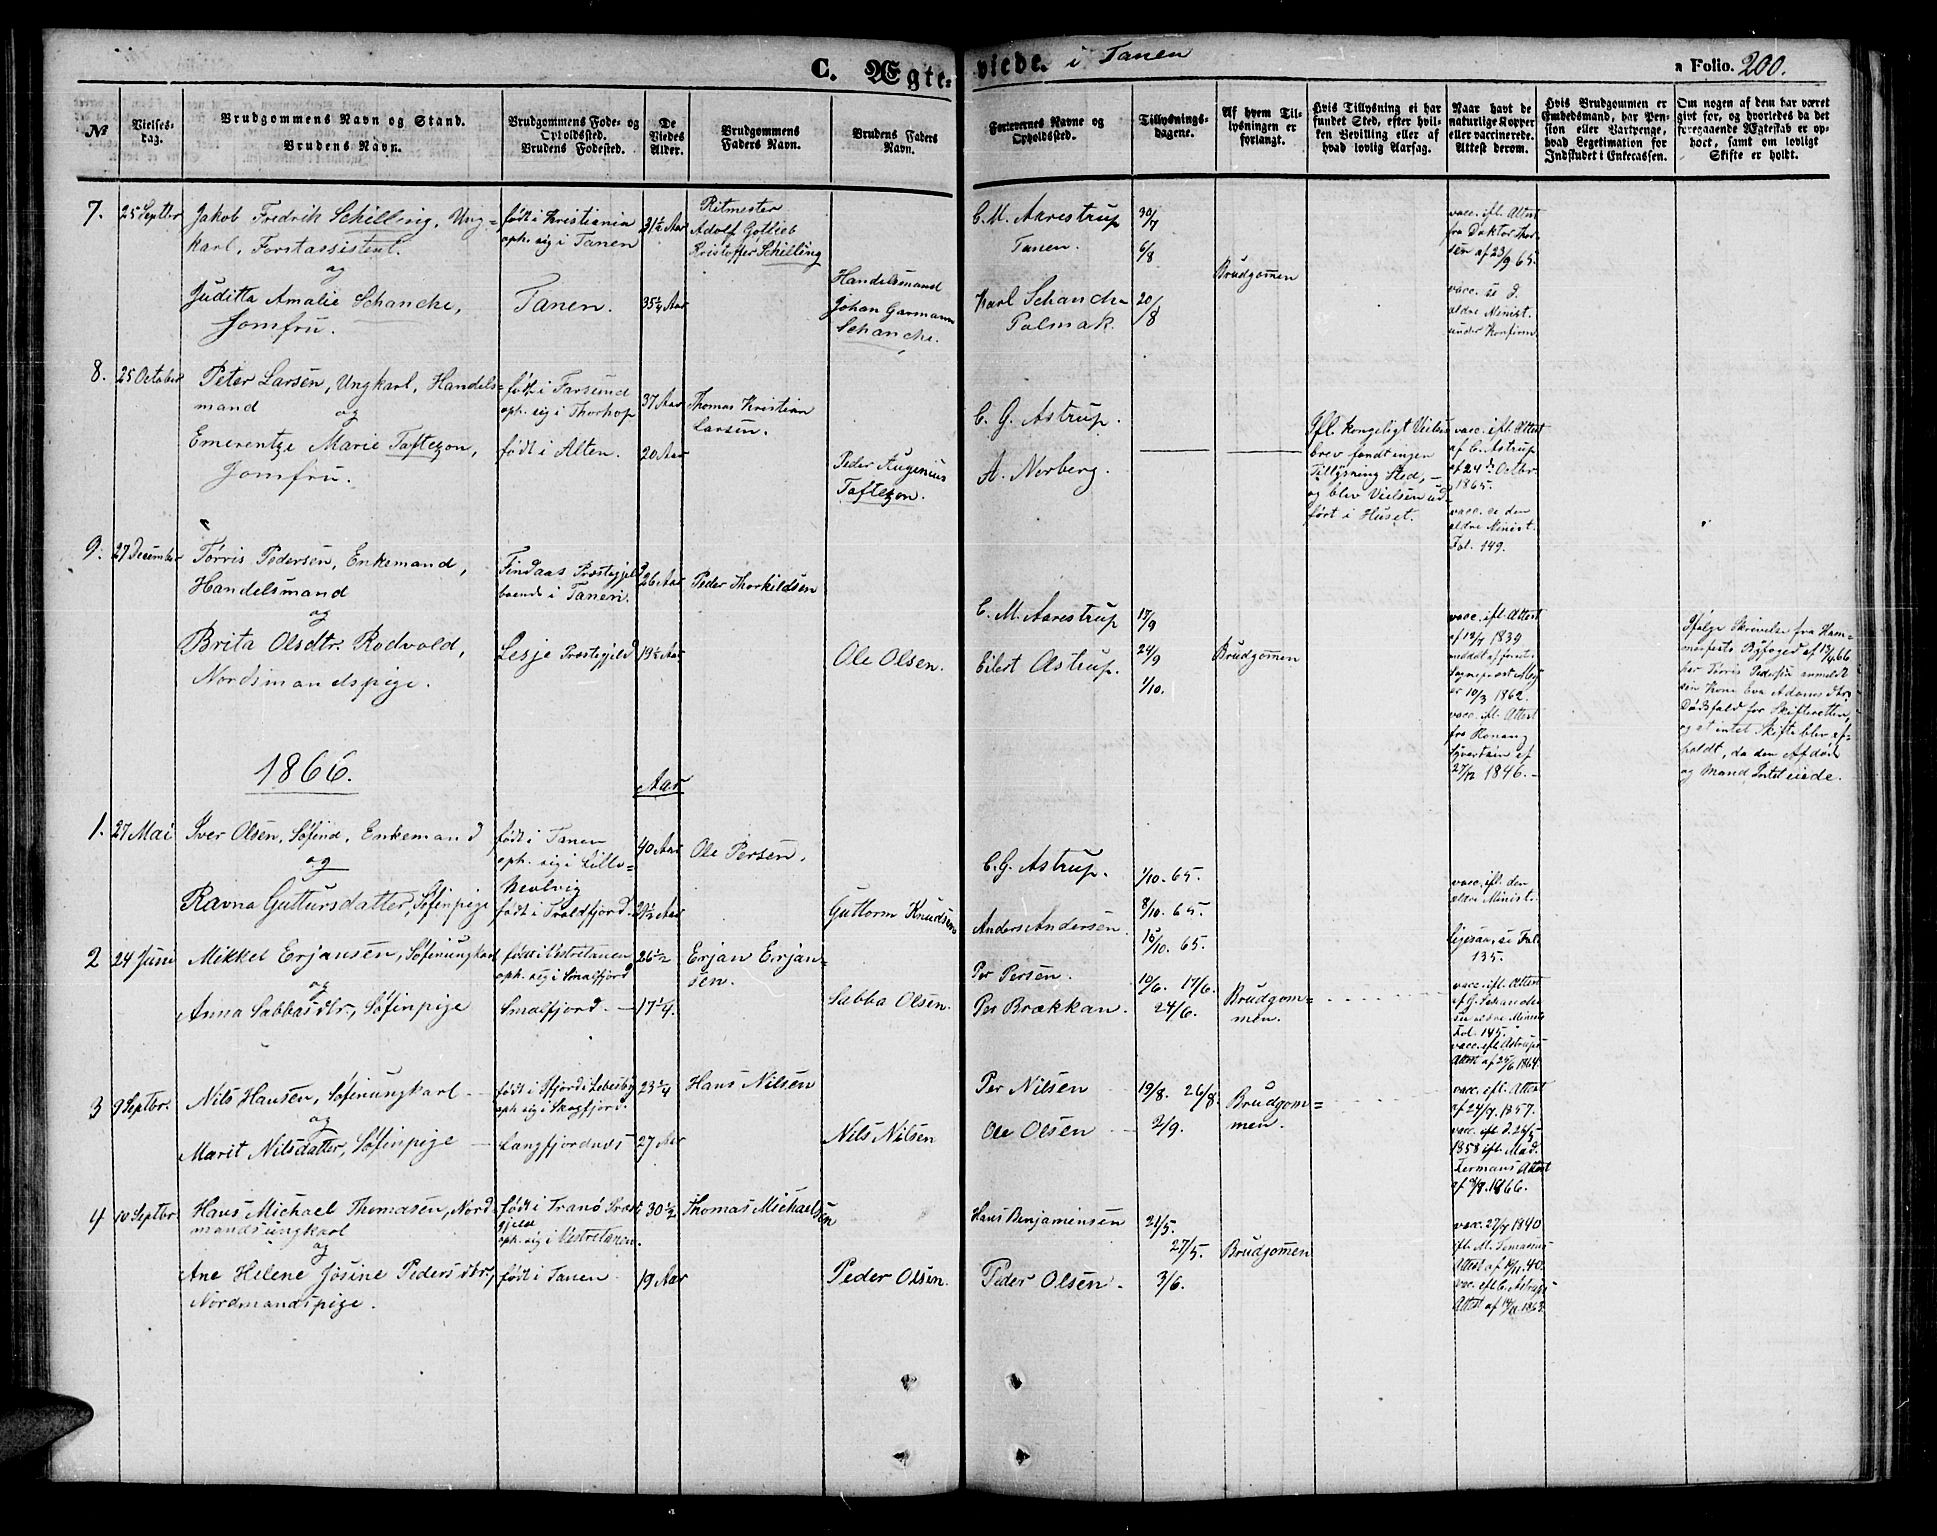 C. Ægte- viede. i Tanen
a Folio. 200.
№
Vielses-
dag.
Brudgommens Navn og Stand.
Brudens Navn.
Brudgommens Føde- og
Opholdssted.
Brudens Fødested.
De
Viedes
Alder.
Brudgommens
Faders Navn.
Brudens Faders
Navn.
Forlovernes Navne og
Opholdssted.
Tillysnings-
dagene.
Af hvem Til-
lysningen er
forlangt.
Hvis Tillysning ei har
fundet Sted, efter hvil-
ken Bevilling eller af
hvad lovlig Aarsag.
Naar havt de
naturlige Kopper
eller vaccinerede.
Attest derom.
Hvis Brudgommen er
Embedsmand, har Pen-
sion eller Vartpenge,
hvad Legitimation for
Indskudet i Enkecassen.
Om nogen af dem har været
givt før, og hvorledes da det
foregaaende Ægteskab er op-
hørt, samt om lovligt
Skifte er holdt.
7. 25 Septbr
Jakob Fredrik Schilling, Ung-
karl, Forstassistent.
og
Juditta Amalie Schanche,
Jomfru.
født i Kristiania
oph. sig i Tanen
Tanen.
31½ Aar
35¼ Aar
Ritmester
Adolf Gotlieb
Kristoffer Schilling
Handelsmand
Johan Garmann
Schanche.
C. M. Aarestrup
Tanen.
Karl Schanche
Polmak.
30/7
6/8
20/8
Brudgommen
vacc. ifl. Attest
fra Doktor Thor-
sen af 23/9 65.
vacc. se d.
ældre Minist.
under Konfirm
8. 25 October
Peter Larsen, Ungkarl, Handels-
mand
og
Emerentze Marie Taftezon,
Jomfru.
født i Farsund
oph. sig i Thorhop
født i Alten.
37 Aar
20 Aar
Thomas Kristian
Larsen.
Peder Augenius
Taftezon.
C. G. Astrup.
A. Norberg.
Ifl. kongeligt Vielses
brev fandt ingen
Tillysning Sted, -
og blev Vielsen ud-
ført i Huset.
vacc. ifl. Attest
af C. Astrup
af 24de Octbr
1865.
vacc. se den
ældre Minist.
Fol. 149.
9. 27 December
Tørris Pedersen, Enkemand,
Handelsmand
og
Brita Olsdtr. Rodvold,
Nordsmandspige.
Findaas Præstegjeld
boende i Tanen.
Lesje Præstegjeld
26 Aar
19½ Aar
Peder Thorkildsen
Ole Olsen.
C. M. Aarestrup
Eilert Astrup.
17/9
24/9
1/10.
Brudgommen
vacc. ifl. Attest
af 12/7 1839
meddelt af forst.
Sognepræst
10/3 1862.
vacc. ifl. Attest
fra
Sivertsen af
27/12 1846. -
Ifølge Skrivelse fra Ham-
merfests Byfoged af 13/4 66
har Tørris Pedersen anmeldt
sin Kone Eva Adamsdtrs
Dødsfald for Skifteretten,
og at intet Skifte blev af-
holdt, da den Afdøde
og Mand Intet eiede.
1866.
Aar
1. 27 Mai
Iver Olsen, Søfind, Enkemand
og
Ravna Gutturs datter, Søfinpige
født i Tanen
oph. sig i Lille-
Neolvig
født i Troldfjord.
40 Aar
21½ Aar
Ole Persen.
Guttorm Knudsen
C. G. Astrup.
Anders Andersen.
1/10. 65.
8/10. 65.
15/10. 65.
vacc. ifl. den
ældre Minist.
Ligesaa, se Fol.
135.
2 24 Juni
Mikkel Erjansen, Søfinungkarl
og
Anna Sabbasdtr., Søfinpige
født i Vestretanen
oph. sig i Smalfjord
Smalfjord. -
26½
17¼.
Erjan Erjan-
sen.
Sabba Olsen.
Per Persen.
Per Brækkan.
10/6. 17/6.
24/6.
Brudgom-
men.
vacc. ifl. Attest
af G. Schanche
se ældre Minist.
Fol. 145.
vacc. ifl. Astrups
Attest af 25/6 1864.
3 9 Septbr.
Nils Hansen, Søfinungkarl
og
Marit Nilsdatter, Søfinpige
født i Ifjord i Lebesby
oph. sig i Skogfjord.
Langfjordnæs
23¼
27 Aar
Hans Nilsen
Nils Nilsen
Per Nilsen
Ole Olsen
19/8. 26/8.
2/9.
Brudgom-
men.
vacc. ifl. Attest
af 24/7 1857.
vacc. ifl. d. 26/5
1858 ifl. Mad.
Fermans Attest
af 9/9. 1866.
4 10 Septbr.
Hans Michael Thomasen, Nord-
mandsungkarl
og
Ane Helene Josine Pedersdtr.,
Nordmandspige.
født i Tranø Præste
gjeld
oph. sig i Vestretanen.
født i Tanen
30½
19 Aar
Thomas Michaelsen
Peder Olsen.
Hans Benjaminsen
Peder Olsen.
21/5.
27/5.
3/6.
Brudgommen
vacc. 27/7 1840
ifl. M.
Attest af 40.
vacc. ifl. C. Astrups
Attest af 1863.